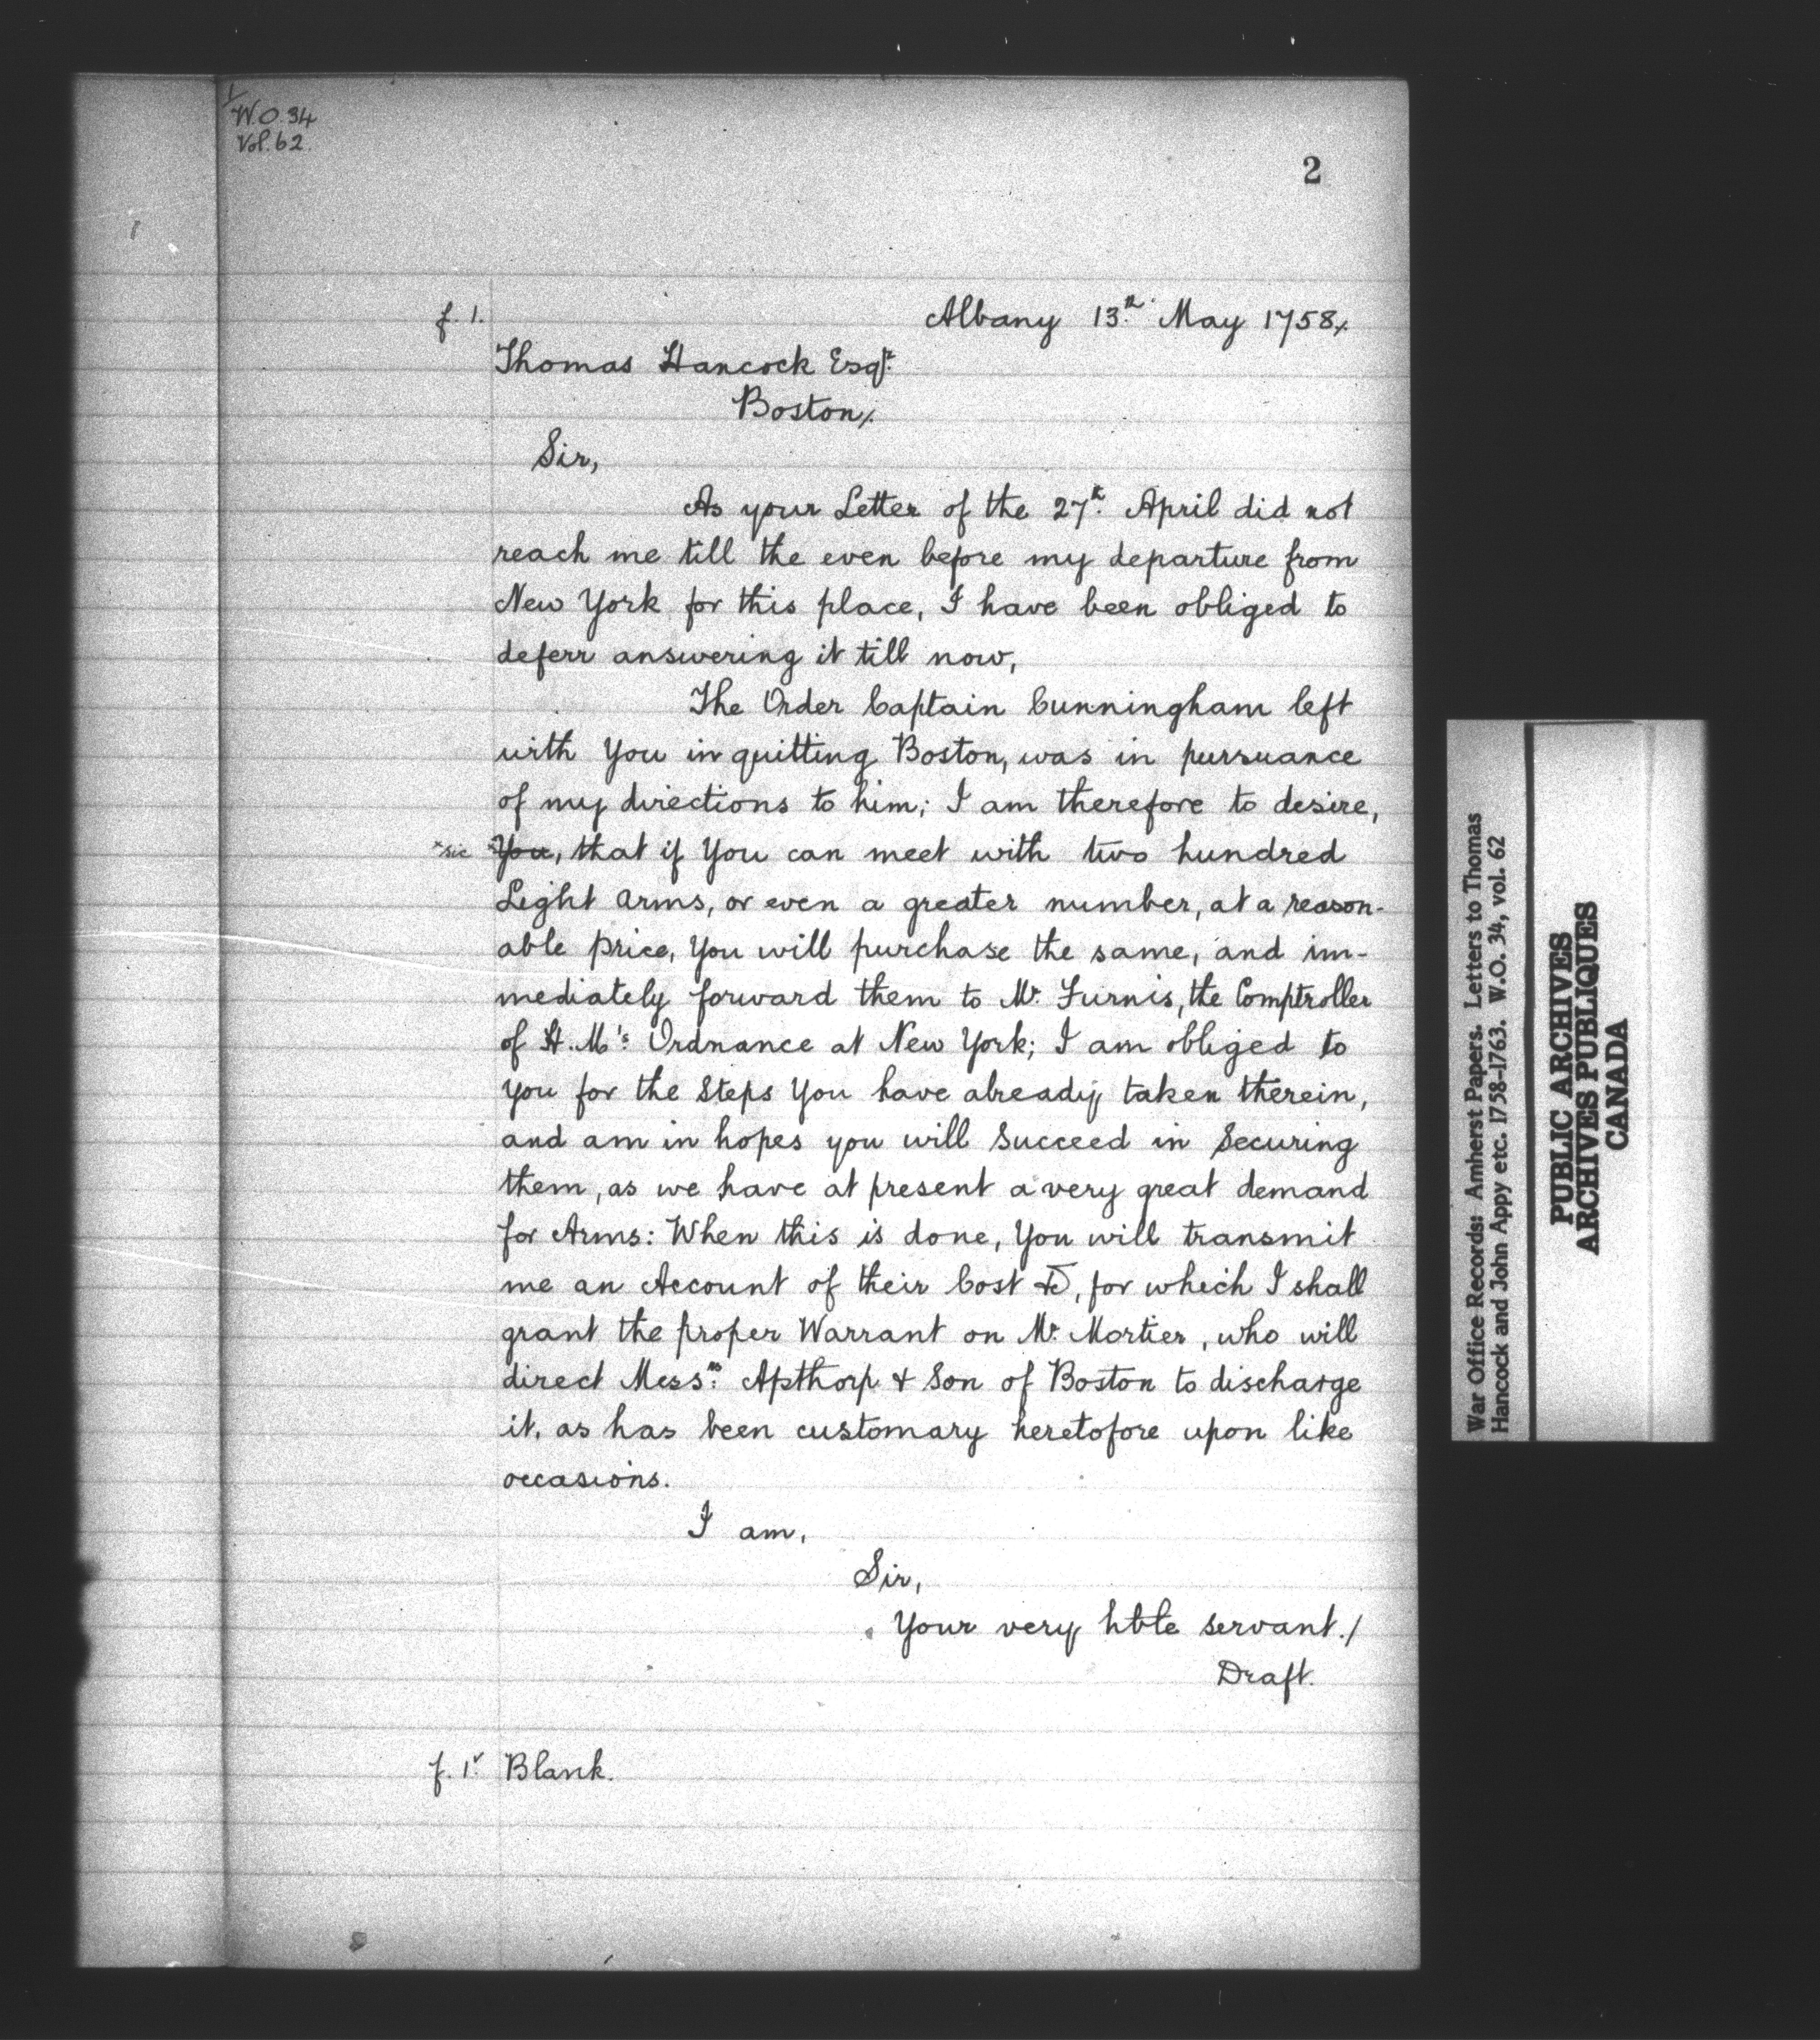 W.O. 34
Vol. 62.
2
f. 1.
Albany 13.th May 1758/.
Thomas Hancock Esqr.
Boston/.
Sir,
As your Letter of the 27.th April did not
reach me till the even before my departure from
New York for this place, I have been obliged to
deferr answering it till now,
The Order Captain Cunningham left
with You in quitting Boston, was in pursuance
of my directions to him; I am therefore to desire,
*sic *You, that if You can meet with two hundred
Light arms, or even a greater number, at a reason-
able price, You will purchase the same, and im-
mediately forward them to Mr. Furnis, the Comptroller
of H.M's: Ordnance at New York; I am obliged to
you for the Steps You have already taken therein,
and am in hopes you will Succeed in Securing
them, as we have at present a very great demand
for Arms: When this is done, You will transmit
me an Account of their Cost &c, for which I shall
grant the proper Warrant on Mr. Mortier, who will
direct Messrs: Apthorp & Son of Boston to discharge
it, as has been customary heretofore upon like
occasions.
I am,
Sir,
Your very hble servant./
Draft.
f. 1v. Blank.
War Office Records: Amherst Papers. Letters to Thomas
Hancock and John Appy etc. 1758-1763. W.O. 34, vol. 62
PUBLIC ARCHIVES
ARCHIVES PUBLIQUES
CANADA